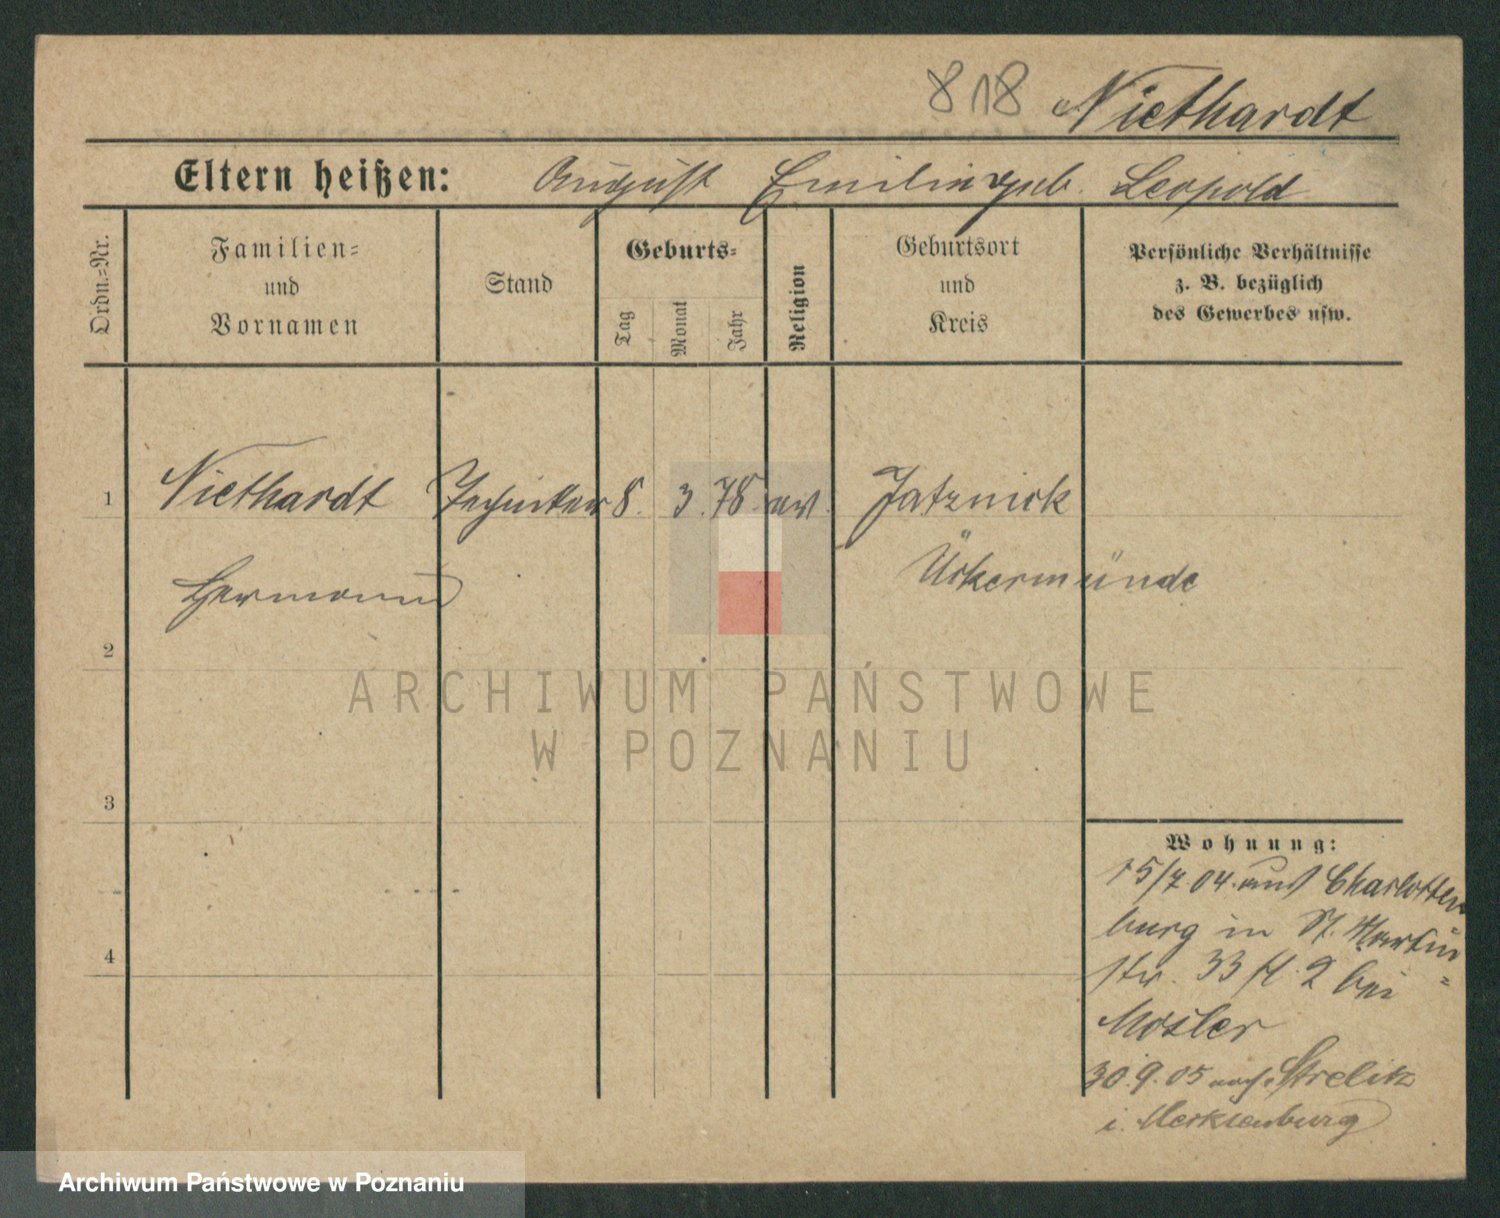 818 Niethardt
Eltern heißen: August Emilie geb. Leopold
Ordn.=Nr.
Familien=
und
Vornamen
Stand
Geburts=
Tag
Monat
Jahr
Religion
Geburtsort
und
Kreis
Persönliche Verhältnisse
z. B. bezüglich
des Gewerbes usw.
1 Niethardt Techniker 8. 3. 78. ev. Jatznick
Hermann Ückermünde
2
ARCHIWUM PAŃSTWOWE
W POZNANIU
3
4
Wohnung:
15/7.04. aus Charlotten
burg in St. Martin
str. 33 II. 2 bei
Mosler
30.9.05 nach Strelitz
i. Mecklenburg
Archiwum Państwowe w Poznaniu